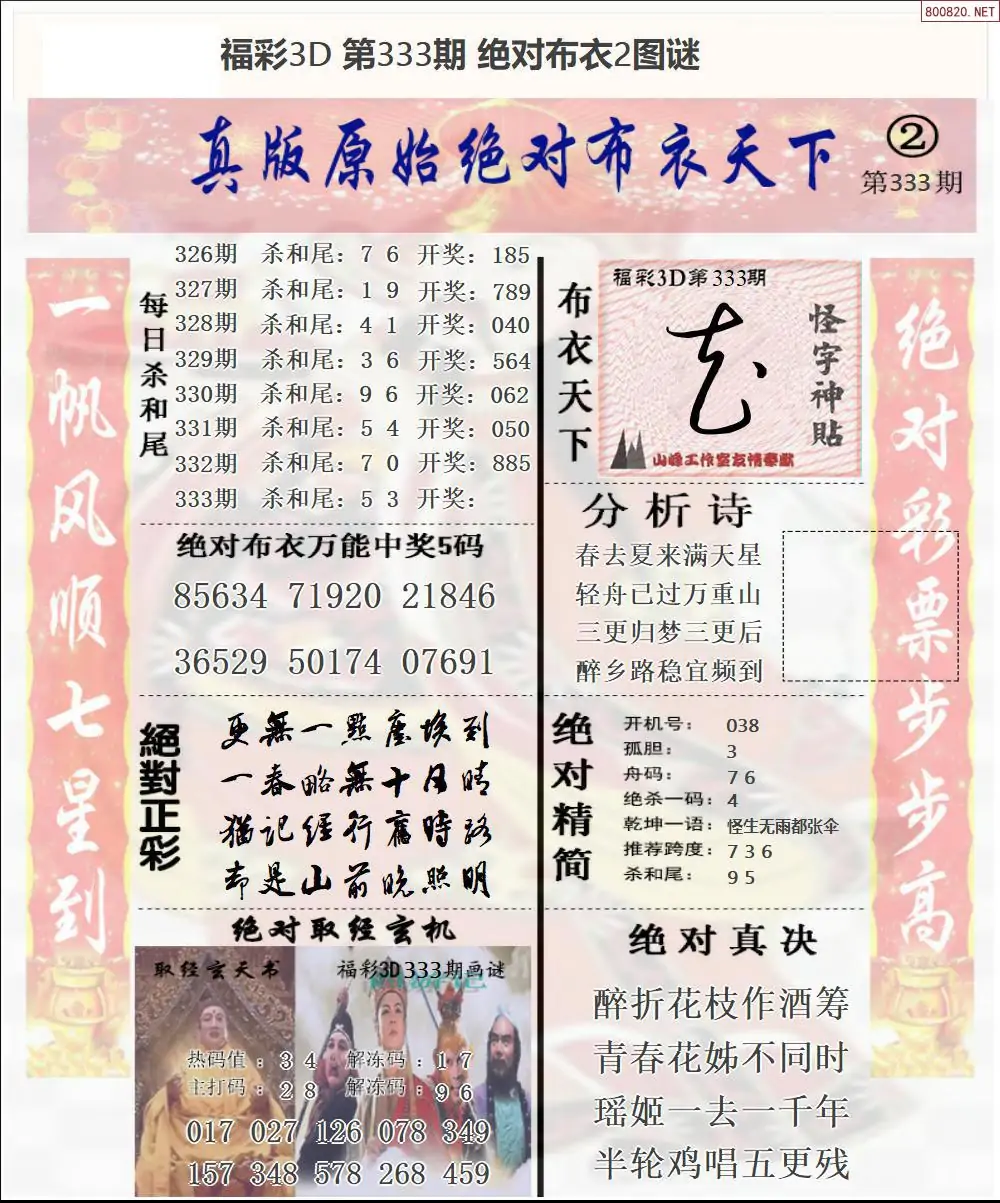 800820.NET
福彩3D 第333期 绝对布衣2图谜
真版原始绝对布衣天下
②
第333期
一帆风顺七星到
每日杀和尾
326期 杀和尾：7 6 开奖：185
327期 杀和尾：1 9 开奖：789
328期 杀和尾：4 1 开奖：040
329期 杀和尾：3 6 开奖：564
330期 杀和尾：9 6 开奖：062
331期 杀和尾：5 4 开奖：050
332期 杀和尾：7 0 开奖：885
333期 杀和尾：5 3 开奖：
绝对布衣万能中奖5码
85634 71920 21846
36529 50174 07691
絕對正彩
更無一點塵埃到
一春略無十日晴
猶记经行舊時路
却是山前晚照明
绝对取经玄机
取经玄天书
福彩3D333期画谜
热码值：3 4 解冻码：1 7
主打码：2 8 解冻码：9 6
017 027 126 078 349
157 348 578 268 459
布衣天下
福彩3D第333期
怪字神貼
山峰工作室友情奉献
分析诗
春去夏来满天星
轻舟已过万重山
三更归梦三更后
醉乡路稳宜频到
绝对精简
开机号：038
孤胆：3
舟码：7 6
绝杀一码：4
乾坤一语：怪生无雨都张伞
推荐跨度：7 3 6
杀和尾：9 5
绝对真决
醉折花枝作酒筹
青春花姊不同时
瑶姬一去一千年
半轮鸡唱五更残
绝对彩票步步高